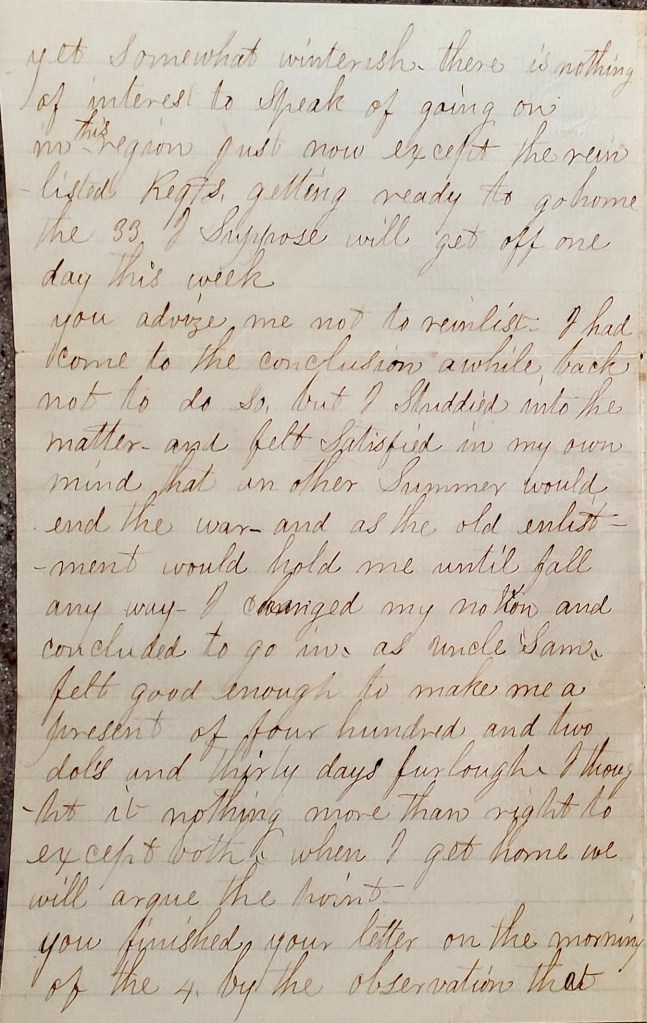 yet somewhat winterish. there is nothing
of interest to speak of going on
in this region just now except the rein
-listed Regts. getting ready to go home
the 33, I Suppose will get off one
day this week
you advize me not to reinlist- I had
come to the conclusion awhile back
not to do so, but I Studdied into the
matter- and felt Satisfied in my own
mind that an other Summer would
end the war- and as the old enlist-
-ment would hold me until fall
any way- I changed my notion and
concluded to go in. as uncle Sam.
felt good enough to make me a
present of four hundred and two
dols and thirty days furlough. I thoug
-ht it nothing more than right to
except both. when I get home we
will argue the point-
you finished your letter on the morning
of the 4. by the observation that